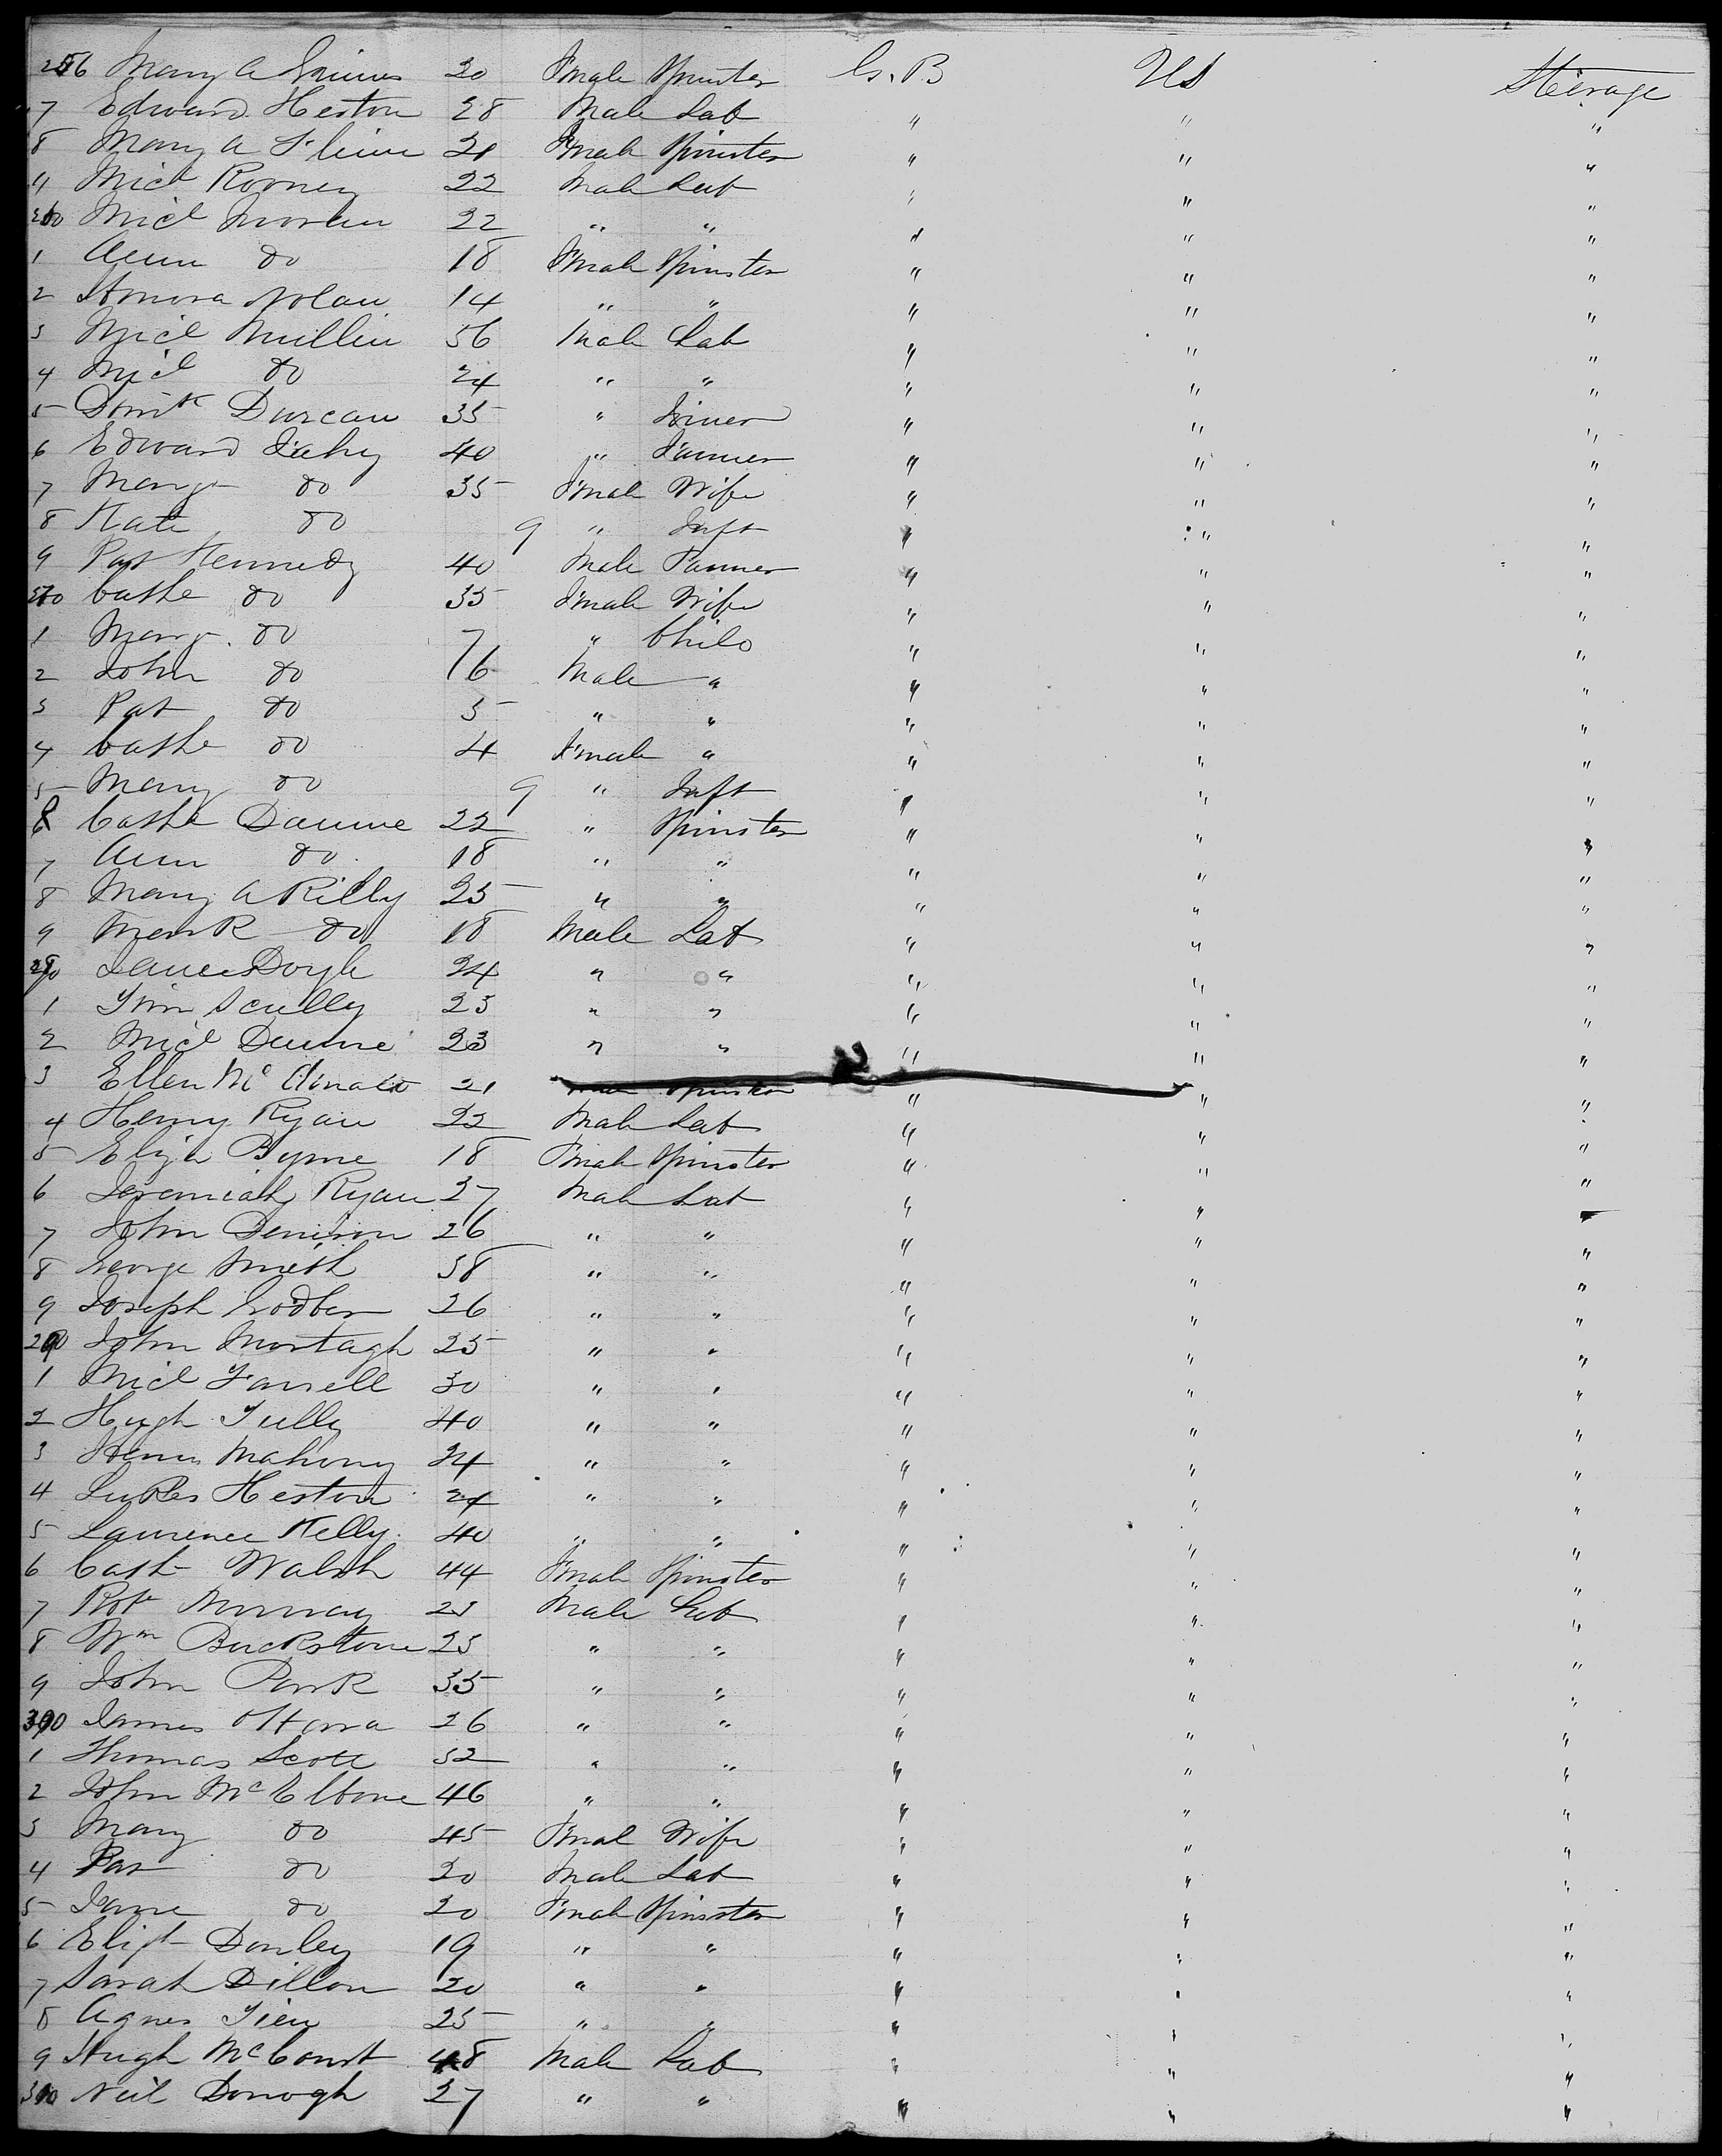 256 Mary A 20 Fmale Spinster G.B US Steerage
7 Edward Heston 28 Male Lab " " "
8 Mary A Flinn 21 Fmale Spinster " " "
9 Micl Rooney 22 Male Lab " " "
260 Micl 22 " " " " "
1 Ann do 18 Fmale Spinster " " "
2 Honora Nolan 14 " " " " "
3 Micl Mullin 56 Male Lab " " "
4 Micl do 24 " " " " "
5 Duncan 35 " Joiner " " "
6 Edward Fahy 40 " Farmer " " "
7 Margt do 35 Fmale Wife " " "
8 Kate do 9 " Inft " " "
9 Pat Kennedy 40 Male Farmer " " "
270 Cathe do 35 Fmale Wife " " "
1 Margt do 7 " Child " " "
2 John do 16 Male " " " "
3 Pat do 5 " " " " "
4 Cathe do 4 Fmale " " " "
5 Mary do 9 " Inft " " "
6 Cathe Dunne 22 " Spinster " " "
7 Ann do 18 " " " " "
8 Mary A Rilly 25 " " " " "
9 Mark do 18 Male Lab " " "
280 Doyle 24 " " " " "
1 Tim Scully 23 " " " " "
2 Micl Dunne 23 " " " " "
3 Ellen Mc 21 Spinster " " "
4 Henry Ryan 22 Male Lab " " "
5 Eliza Byrne 18 Fmale Spinster " " "
6 Jeremiah Ryan 27 Male Lab " " "
7 John Denison 26 " " " " "
8 George Smith 38 " " " " "
9 Joseph Godber 26 " " " " "
290 John Mortagh 25 " " " " "
1 Micl Farrell 30 " " " " "
2 Hugh Tully 40 " " " " "
3 Mahony 24 " " " " "
4 Heston 24 " " " " "
5 Laurence Kelly 40 " " " " "
6 Cath Walsh 44 Fmale Spinster " " "
7 Robt Murray 23 Male Lab " " "
8 Wm Buckstone 23 " " " " "
9 John Park 35 " " " " "
300 James OHara 26 " " " " "
1 Thomas Scott 32 " " " " "
2 John Mc Elhone 46 " " " " "
3 Mary do 45 Fmal Wife " " "
4 Pat do 20 Male Lab " " "
5 Jane do 20 Fmale Spinster " " "
6 Elizt Donley 19 " " " " "
7 Sarah Dillon 20 " " " " "
8 Agnes 25 " " " " "
9 Hugh McCourt 48 Male Lab " " "
310 Neil Donogh 27 " " " " "